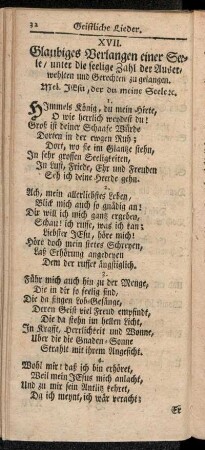 32 Geistliche Lieder.
XVII.
Glaubiges Verlangen einer See-
le, unter die seelige Zahl der Auser-
wehlten und Gerechten zu gelangen.
Mel. JEsu, der du meine Seele ꝛc.
1.
HImmels König, du mein Hirte,
O wie herrlich weydest du!
Groß ist deiner Schaafe Würde
Dorten in der ewgen Ruh;
Dort, wo sie im Glantze stehn,
In sehr grossen Seeligkeiten,
In Lust, Friede, Ehr und Freuden
Seh ich deine Heerde gehn.
2.
Ach, mein allerliebstes Leben,
Blick mich auch so gnädig an!
Dir will ich mich gantz ergeben,
Schau! ich ruffe, was ich kan;
Liebster JEsu, höre mich!
Höre doch mein stetes Schreyen,
Laß Erhörung angedeyen
Dem der ruffet ängstiglich.
3.
Führ mich auch hin zu der Menge,
Die in dir so seelig sind,
Die da singen Lob-Gesänge,
Deren Geist viel Freud empfindt,
Die da stehn im hellen Licht,
In Krafft, Herrlichkeit und Wonne,
Uber die die Gnaden-Sonne
Strahlt mit ihrem Angesicht.
4.
Wohl mir! daß ich bin erhöret,
Weil mein JEsus mich anlacht,
Und zu mir sein Antlitz kehret,
Da ich meynt, ich wär veracht;
Er